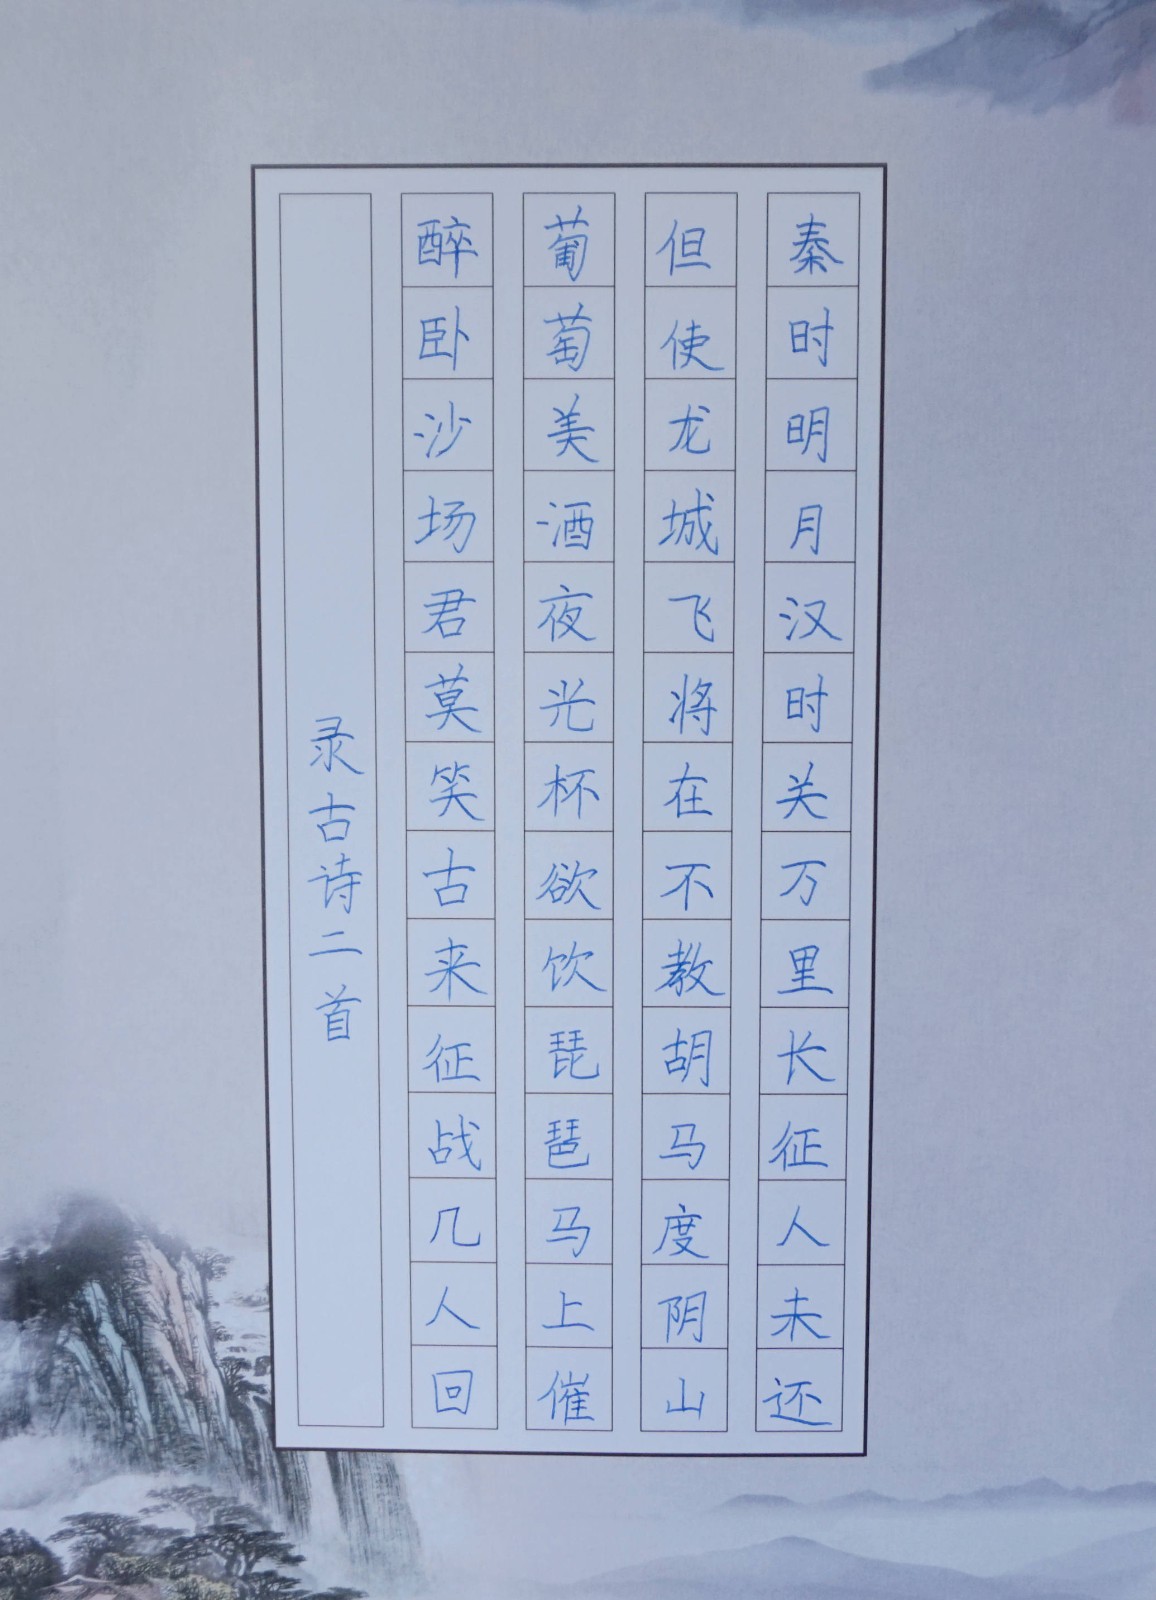 秦时明月汉时关万里长征人未还
但使龙城飞将在不教胡马度阴山
葡萄美酒夜光杯欲饮琵琶马上催
醉卧沙场君莫笑古来征战几人回
录古诗二首